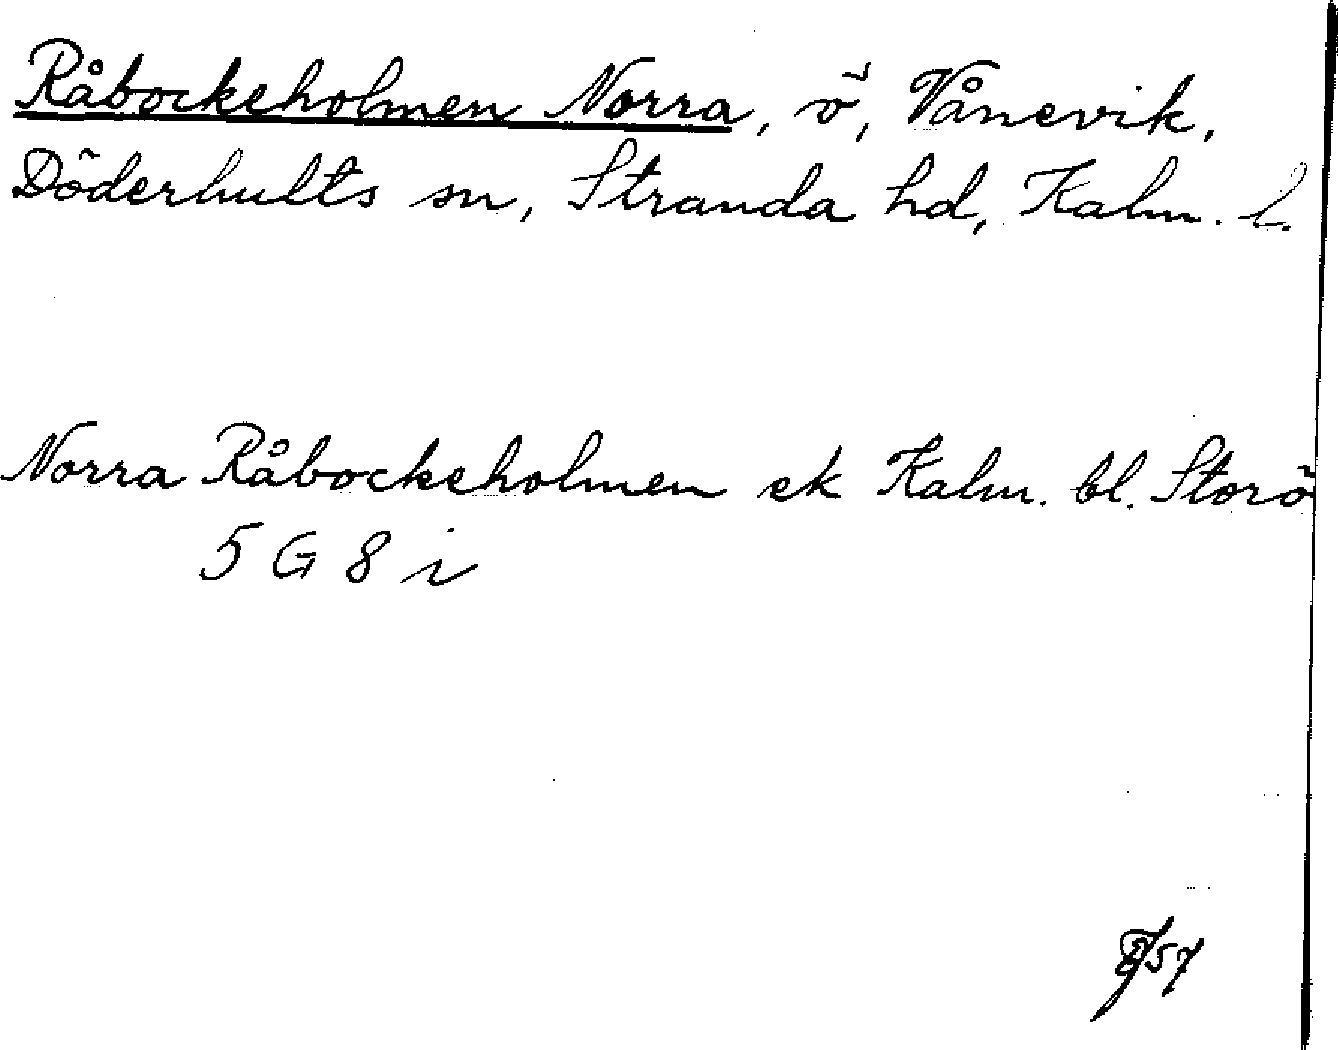 Råbockeholmen Norra, ö, Vånevik,
Döderhults sn, Stranda hd, Kalm. l.
Norra Råbockeholmen ek Kalm. bl. Storö
5 G 8 i
57